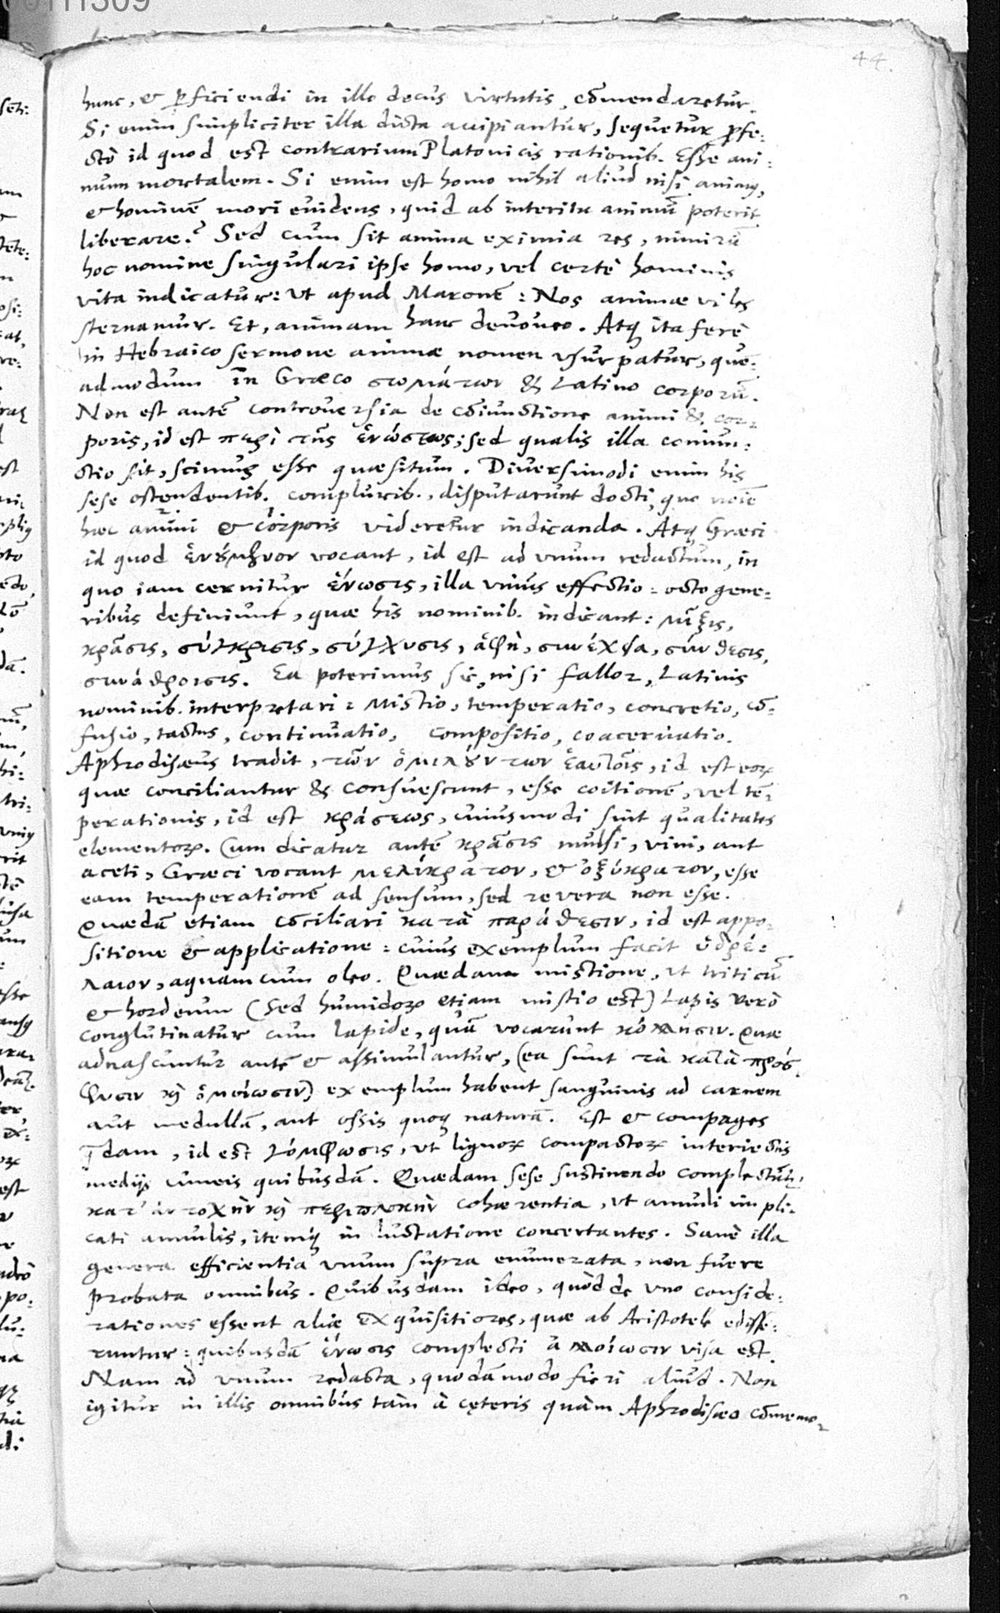 44.
hunc, & ꝑficiendi in illo decus virtutis, cōmendaretur.
Si enim simpliciter illa dicta accipiantur, sequetur ꝓfe-
cto id quod est contrarium Platonicis rationib. Esse ani-
mum mortalem. Si enim est homo nihil aliud nisi animꝰ,
& hominē mori euidens, quid ab interitu animū poterit
liberare? Sed cum sit anima eximia res, nimirū
hoc nomine singulari ipse homo, vel certè hominis
vita indicatur: Vt apud Maronē: Nos animæ viles
sternamur. Et, animam hanc deuoueo. Atq́ ita ferè
in Hebraico sermone animæ nomen vsurpatur, que-
admodum in Græco σωμάτων & Latino corporū.
Non est autē controuersia de cōiunctione animi & cor-
poris, id est περὶ τῆς ἑνώσεως; sed qualis illa coniun-
ctio sit, scimus esse quæsitum. Diuersimodi enim his
sese ostendentib. complurib., disputarunt docti, quo noīe
hæc animi & corporis videretur indicanda. Atq́ Græci
id quod ἑνούμενον vocant, id est ad vnum redactum, in
quo iam cernitur ἕνωσις, illa vnius effectio: octo gene-
ribus definiunt, quæ his nominib. indicant: μῖξις,
κρᾶσις, σύγκρισις, σύγχυσις, ἁφὴ, συνέχεια, σύνθεσις,
συνάθροισις. Ea poterimus sic, nisi fallor, Latinis
nominib. interpretari: Mistio, temperatio, concretio, cō-
fusio, tactus, continuatio, compositio, coaceruatio.
Aphrodisæus tradit, τῶν ὁμιλούντων ἑαυτοῖς, id est eoꝝ
quæ conciliantur & consuescunt, esse coitionē, vel tē-
perationis, id est κράσεως, cuiusmodi sint qualitates
elementoꝝ. Cum dicatur autē κρᾶσις mulsi, vini, aut
aceti, Græci vocant μελίκρατον, & ὀξύκρατον, esse
eam temperationē ad sensum, sed revera non esse.
Quædā etiam cōciliari κατὰ παράθεσιν, id est appo-
sitione & applicatione: cuius exemplum facit ὑδρέ-
λαιον, aquam cum oleo. Quædam mistione, vt triticū
& hordeum (sed humidoꝝ etiam mistio est) Lapis verò
conglutinatur cum lapide, quā vocarunt κόλλησιν. Quæ
adnascuntur autē & assimulantur, (ea sunt τὰ κατὰ πρός-
φυσιν κ̀ ὁμοίωσιν) exemplum habent sanguinis ad carnem
aut medullā, aut ossis quoq́ naturā. Est & compages
q̄dam, id est γόμφωσις, vt lignoꝝ compactoꝝ interiectis
medijs cuneis quibusdā. Quædam sese sustinendo complectūt,
κατ' ἀντοχὴν κ̀ περιπλοκὴν cohærentia, vt annuli impli-
cati annulis, itemq́ in luctatione concertantes. Sanè illa
genera efficientia vnum supra enumerata, non fuere
probata omnibus. Quibusdam ideo, quòd de vno conside-
rationes essent aliæ exquisitiores, quæ ab Aristotele edisse-
runtur: quibusdā ἕνωσις complecti ἀλλοίωσιν visa est.
Nam ad vnum redacta, quodāmodo fieri aliud. Non
igitur in illis omnibus tam à cęteris quàm Aphrodisæo cōmemo-